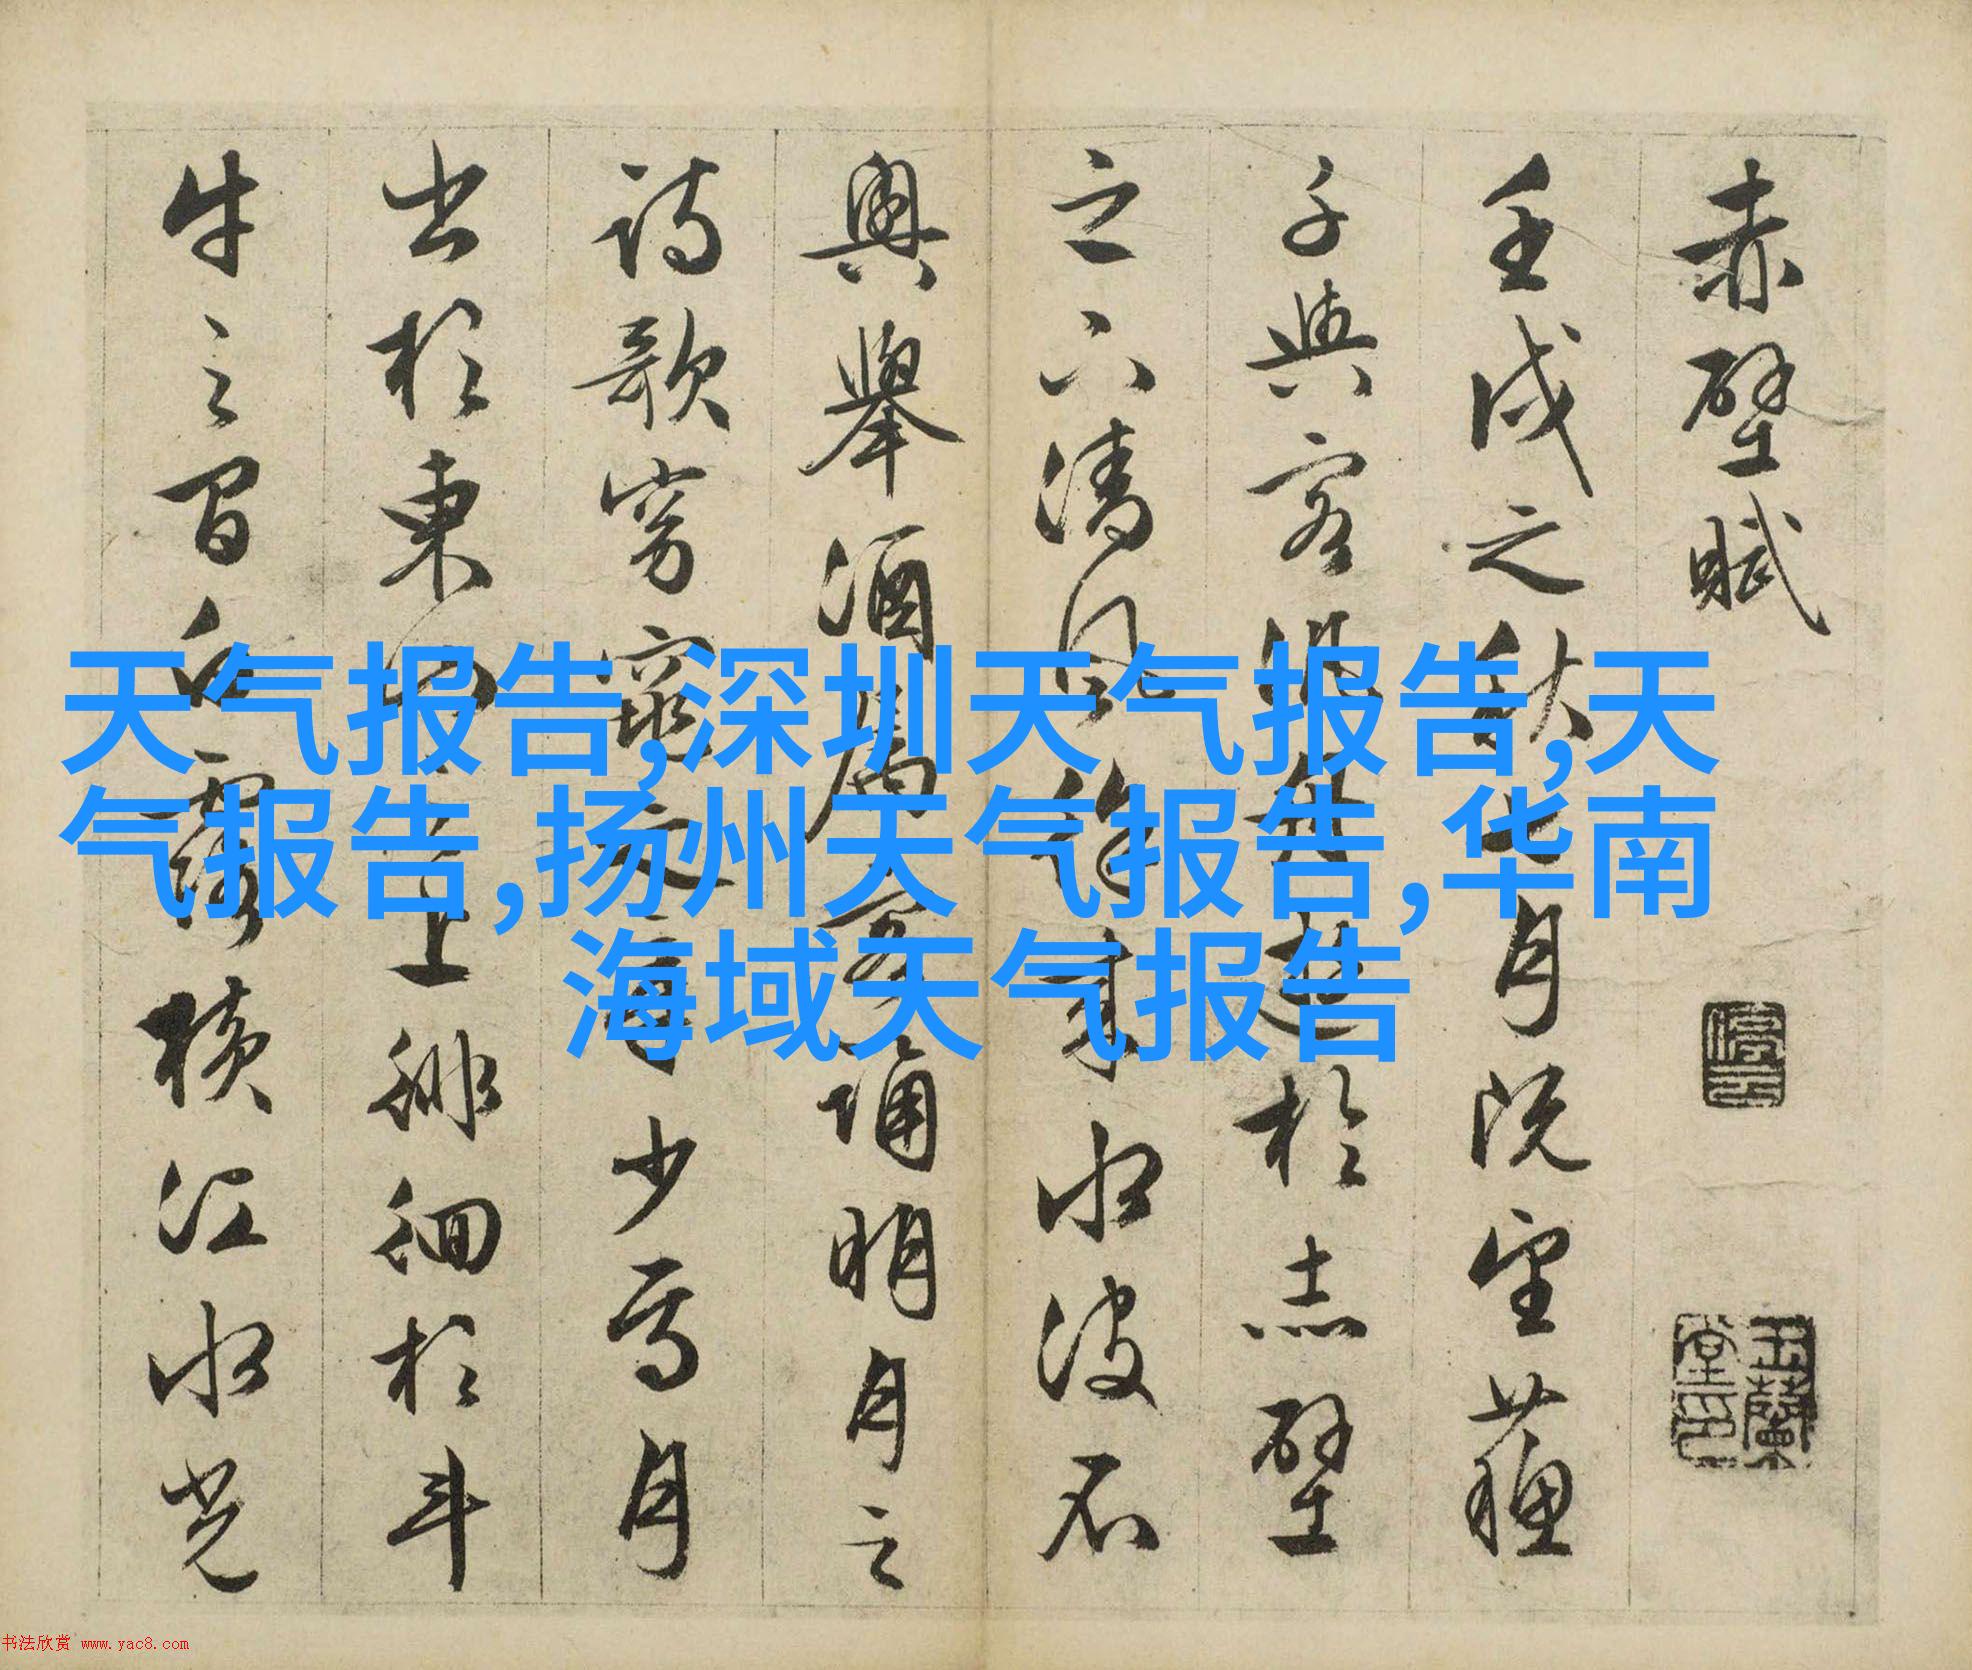 赤壁賦
壬戌之秋七月既望蘇
子與客泛舟遊於赤壁
之下清風徐來水波不
興舉酒屬客誦明月之
詩歌窈窕之章少焉月
出於東山之上徘徊於斗
牛之間白露橫江水光
停雲
玉蘭堂印
天气报告,深圳天气报告,天
气报告,扬州天气报告,华南
海域天气报告
书法欣赏 www.yac8.com